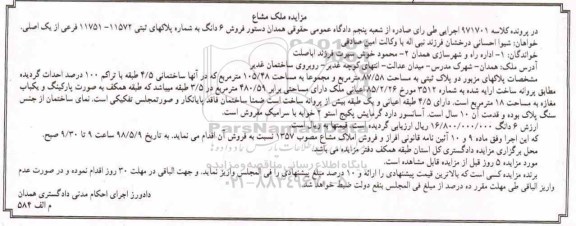 مزایده ملک مشاع
در پرونده کلاسه ۹۷۱۷۰۱ اجرایی طی رای صادره از شعبه پنجم دادگاه عمومی حقوقی همدان دستور فروش ۶ دانگ به شماره پلاکهای ثبتی ۱۱۵۷۲- ۱۱۷۵۱ فرعی از یک اصلی.
خواهان: شیوا احسانی درخشان فرزند نبی اله با وکالت امین صادقی
خواندگان: ۱- اداره راه و شهرسازی همدان ۲- محمود فرزند اباصلت
آدرس ملک: همدان- شهرک مدرس- میدان عدالت- انتهای کوچه غدیر- روبروی ساختمان غدیر
مشخصات پلاکهای مزبور دو پلاک ثبتی به مساحت ۸۷/۵۸ مترمربع و مجموعا به مساحت ۱۰۵/۴۸ مترمربع که در آنها ساختمانی ۴/۵ طبقه با تراکم ۱۰۰ درصد احداث گردیده
مطابق پروانه ساخت ارایه شده به شماره ۳۵۱۲ مورخ ۸۵/۲/۲۶ اعیانی ملک دارای مساحتی برابر ۴۸۰/۵۹ مترمربع در ۳/۵ طبقه میباشد که طبقه همکف به صورت پارکینگ و یکباب
مغازه به مساحت ۱۸ مترمربع است. دارای ۴/۵ طبقه اعیانی و یک طبقه بیش از پروانه ساخت است ضمنا ساختمان فاقد پایانکار و صورتمجلس تفکیکی است. نمای ساختمان از جنس
سنگ پلاک بوده و قدمت آن ۱۰ سال است. آسانسور دارد گرمایش پکیج استو ۲ خوابه با سرامیک مفروش است.
ارزش ۶ دانگ ۱۶/۸۰۰/۰۰۰/۰۰۰ ریال ارزیابی گردیده
که این اجرا وفق ماده ۹ و ۱۰ آئین نامه قانونی افراز و فروش املاک مشاع مصوب ۱۳۵۷ نسبت به فروش آن اقدام می نماید. به تاریخ ۹۸/۵/۹ ساعت ۹ تا ۹/۳۰ صبح.
محل برگزاری مزایده دادگستری کل استان طبقه همکف دفتر مزایده می باشد.
مورد مزایده ۵ روز قبل از مزایده قابل مشاهده است.
برنده مزایده کسی است که بالاترین قیمت پیشنهادی را ارائه و ۱۰ درصد مبلغ پیشنهادی را فی المجلس واریز نماید. و جهت الباقی در مهلت ۳۰ روز اقدام نموده و در صورت عدم
واریز الباقی طی مهلت مقرر ده درصد از مبلغ فی المجلس بنفع دولت ضبط خواهد شد.
دادورز اجرای احکام مدنی دادگستری همدان
م الف ۵۸۴
ParsNamadData
۰۲۱-۸۸۳۴۹۶